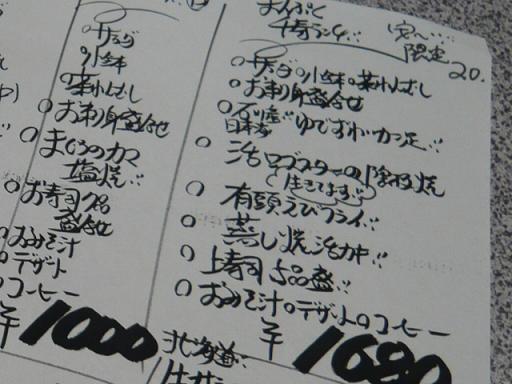 サラダ
小鉢
茶わんむし
お刺身盛合せ
まぐろのカマ
塩焼
お寿司
盛合せ
おみそ汁
デザート
コーヒー
¥1000
まんぷく
限定
20.
サラダ 小鉢 茶わんむし
お刺身盛合せ
日本海 ゆでずわいカニ足
活ロブスターの
生きてます
有頭えびフライ
蒸し焼活カキ
上寿司5品盛
おみそ汁 デザート コーヒー
¥1680
北海道